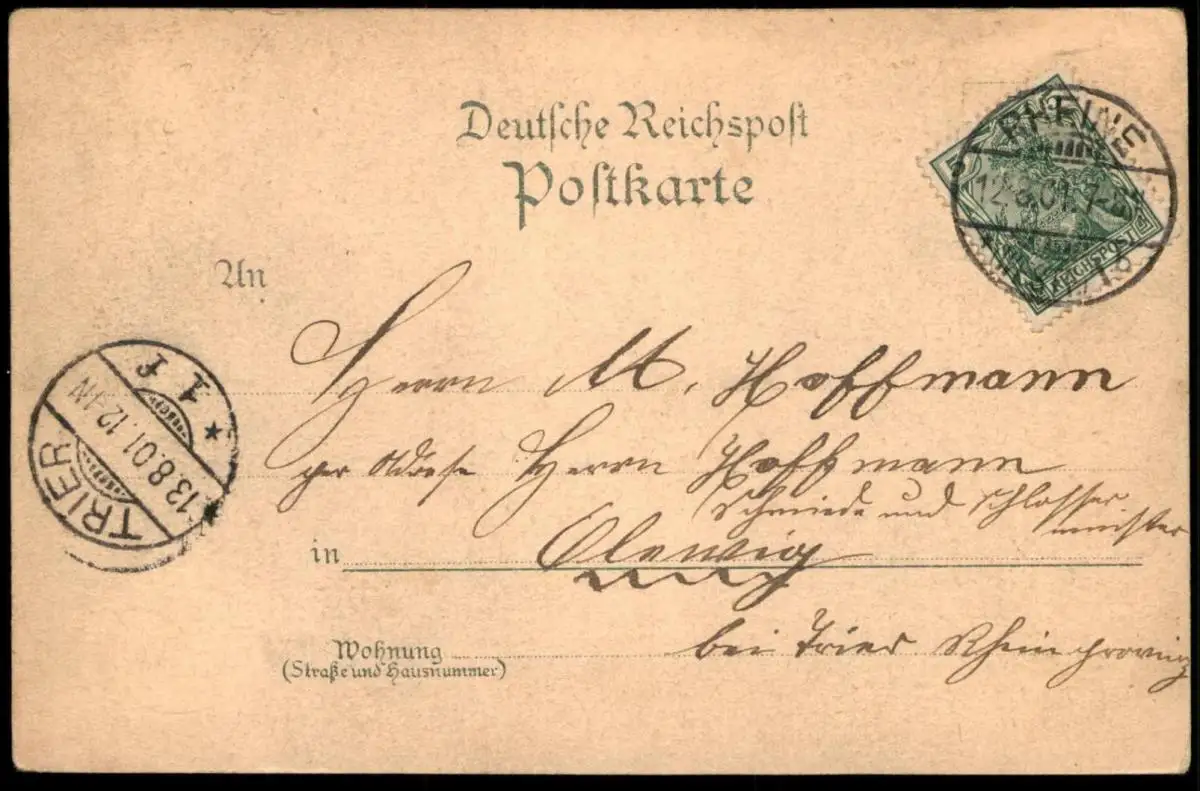 Deutsche Reichspost
Postkarte
RHEINE
12.8.01.7-8
REICHSPOST
An
Herrn M. Hoffmann
per Adresse Herrn Hoffmann
Schmiede und Schlosser
meister
in Olewig
bei Trier Rheinprovinz
Wohnung
(Straße und Hausnummer)
TRIER
13.8.01.12-1N
* 1 f